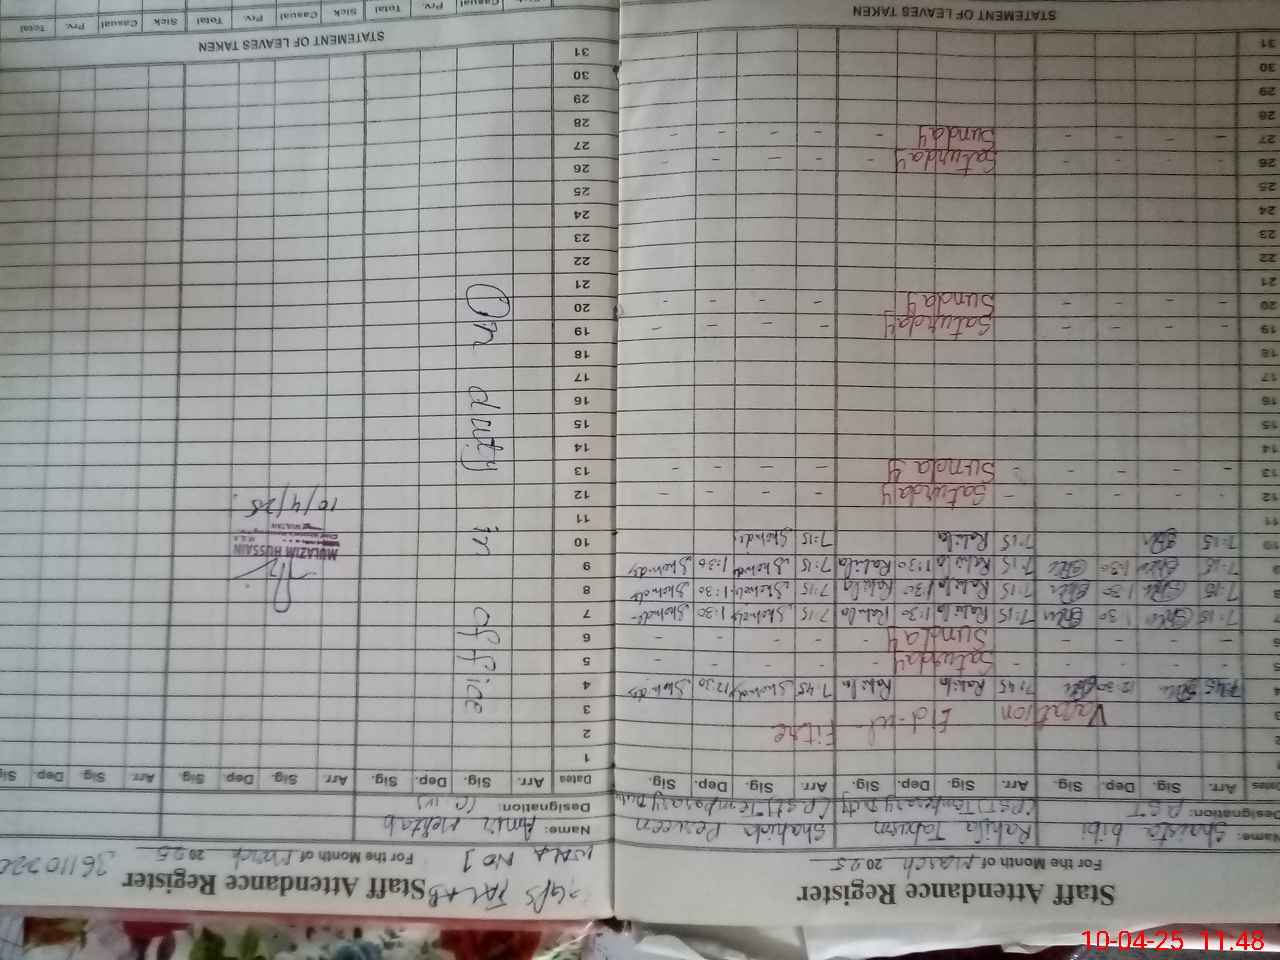 Staff Attendance Register
For the Month of March 2025
Name: Shaista bibi Rahila Tabusm Shahida Perveen
Designation: P.S.T (PST) Temperary Duty (PST) Temperary Dut
Dates Arr. Sig. Dep. Sig. Arr. Sig. Dep. Sig. Arr. Sig. Dep. Sig.
1
2
3 Vacation Eid-ul- Fitre
4 7:45 12:30 7:45 Rahila Rahila 7:45 12:30
5 - - - - Saturday - - - -
6 - - - - Sunday - - - -
7 7:15 1:30 7:15 Rahila 1:30 Rahila 7:15 1:30
8 7:15 1:30 7:15 Rahila 1:30 Rahila 7:15 1:30
9 7:15 1:30 7:15 Rahila 1:30 Rahila 7:15 1:30
10 7:15 7:15 Rahila 7:15
11
12 - - - - Saturday - - - -
13 - - - - Sunday - - - -
14
15
16
17
18
19 - - - - Saturday - - - -
20 - - - - Sunday - - - -
21
22
23
24
25
26 - - - - Saturday - - - -
27 - - - - Sunday - - - -
28
29
30
31
STATEMENT OF LEAVES TAKEN
Staff Attendance Register
WALA NO 1
For the Month of March 2025
Name: Amir Mehtab
Designation:
Dates Arr. Sig. Dep. Sig. Arr. Sig. Dep. Sig. Arr. Sig. Dep. Sig.
1
2
3
4
5
6
7
8
9
10
11
12
13
14
15
16
17
18
19
20
21
22
23
24
25
26
27
28
29
30
31
On duty in office
MULAZIM HUSSAIN
MULTAN
10/4/25
STATEMENT OF LEAVES TAKEN
Sick Casual Prv. Total Sick Casual Prv. Total Sick Casual Prv. Total
10-04-25 11:48